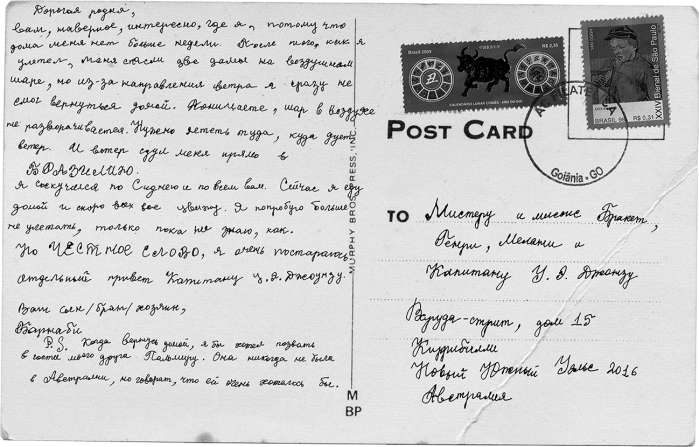 Дорогая родня,
вам, наверное, интересно, где я, потому что
дома меня нет больше недели. После того, как я
улетел, меня спасли две дамы на воздушном
шаре, но из-за направления ветра я сразу не
смог вернуться домой. Понимаете, шар в воздухе
не разворачивается. Нужно лететь туда, куда дует
ветер. И ветер сдул меня прямо в
БРАЗИЛИЮ.
Я соскучился по Сиднею и по всем вам. Сейчас я еду
домой и скоро вас всех увижу. Я попробую больше
не улетать, только пока не знаю, как.
Но ЧЕСТНОЕ СЛОВО, я очень постараюсь.
Отдельный привет Капитану У. Э. Джонзу.
Ваш сын/брат/хозяин,
Барнаби
P.S. Когда вернусь домой, я бы хотел позвать
в гости моего друга Пальмиру. Она никогда не была
в Австралии, но говорит, что ей очень хотелось бы.
MURPHY BROS. PRESS, INC.
M
BP
Brasil 2009
R$ 2,35
CALENDÁRIO LUNAR CHINÊS - ANO DO BOI
XXIV Bienal de São Paulo
BRASIL 98
R$ 0,31
Goiânia - GO
POST CARD
TO
Мистеру и миссис Бракет,
Генри, Мелани и
Капитану У. Э. Джонзу
Вэруда-стрит, дом 15
Киррибилли
Новый Южный Уэльс 2016
Австралия